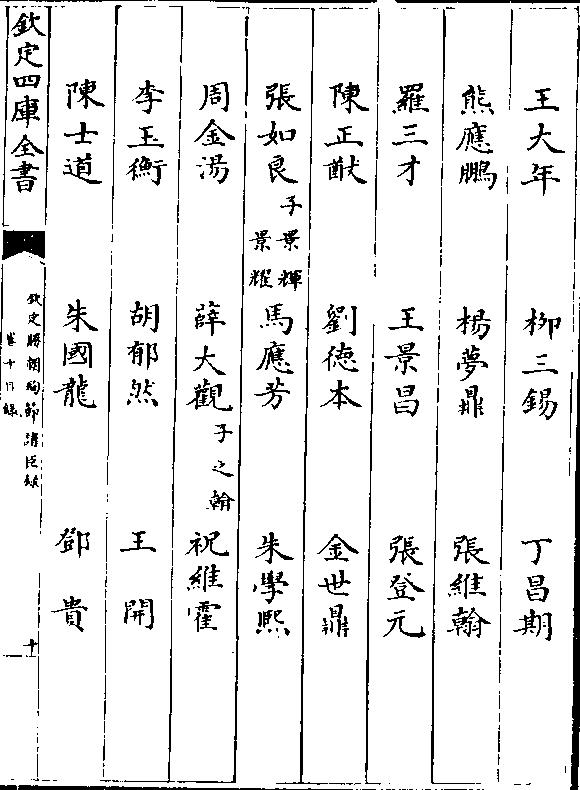 王大年　柳三錫　丁昌期
熊應鵬　楊夢鼎　張維翰
羅三才　王景昌　張登元
陳正猷　劉德本　金世鼎
張如良子景輝景耀　馬應芳　朱學熙
周金湯　薛大觀子之翰　祝維霍
李玉衡　胡郁然　王開
陳士道　朱國龍　鄧貴
欽定四庫全書　欽定勝朝殉節諸臣録卷十目録　十